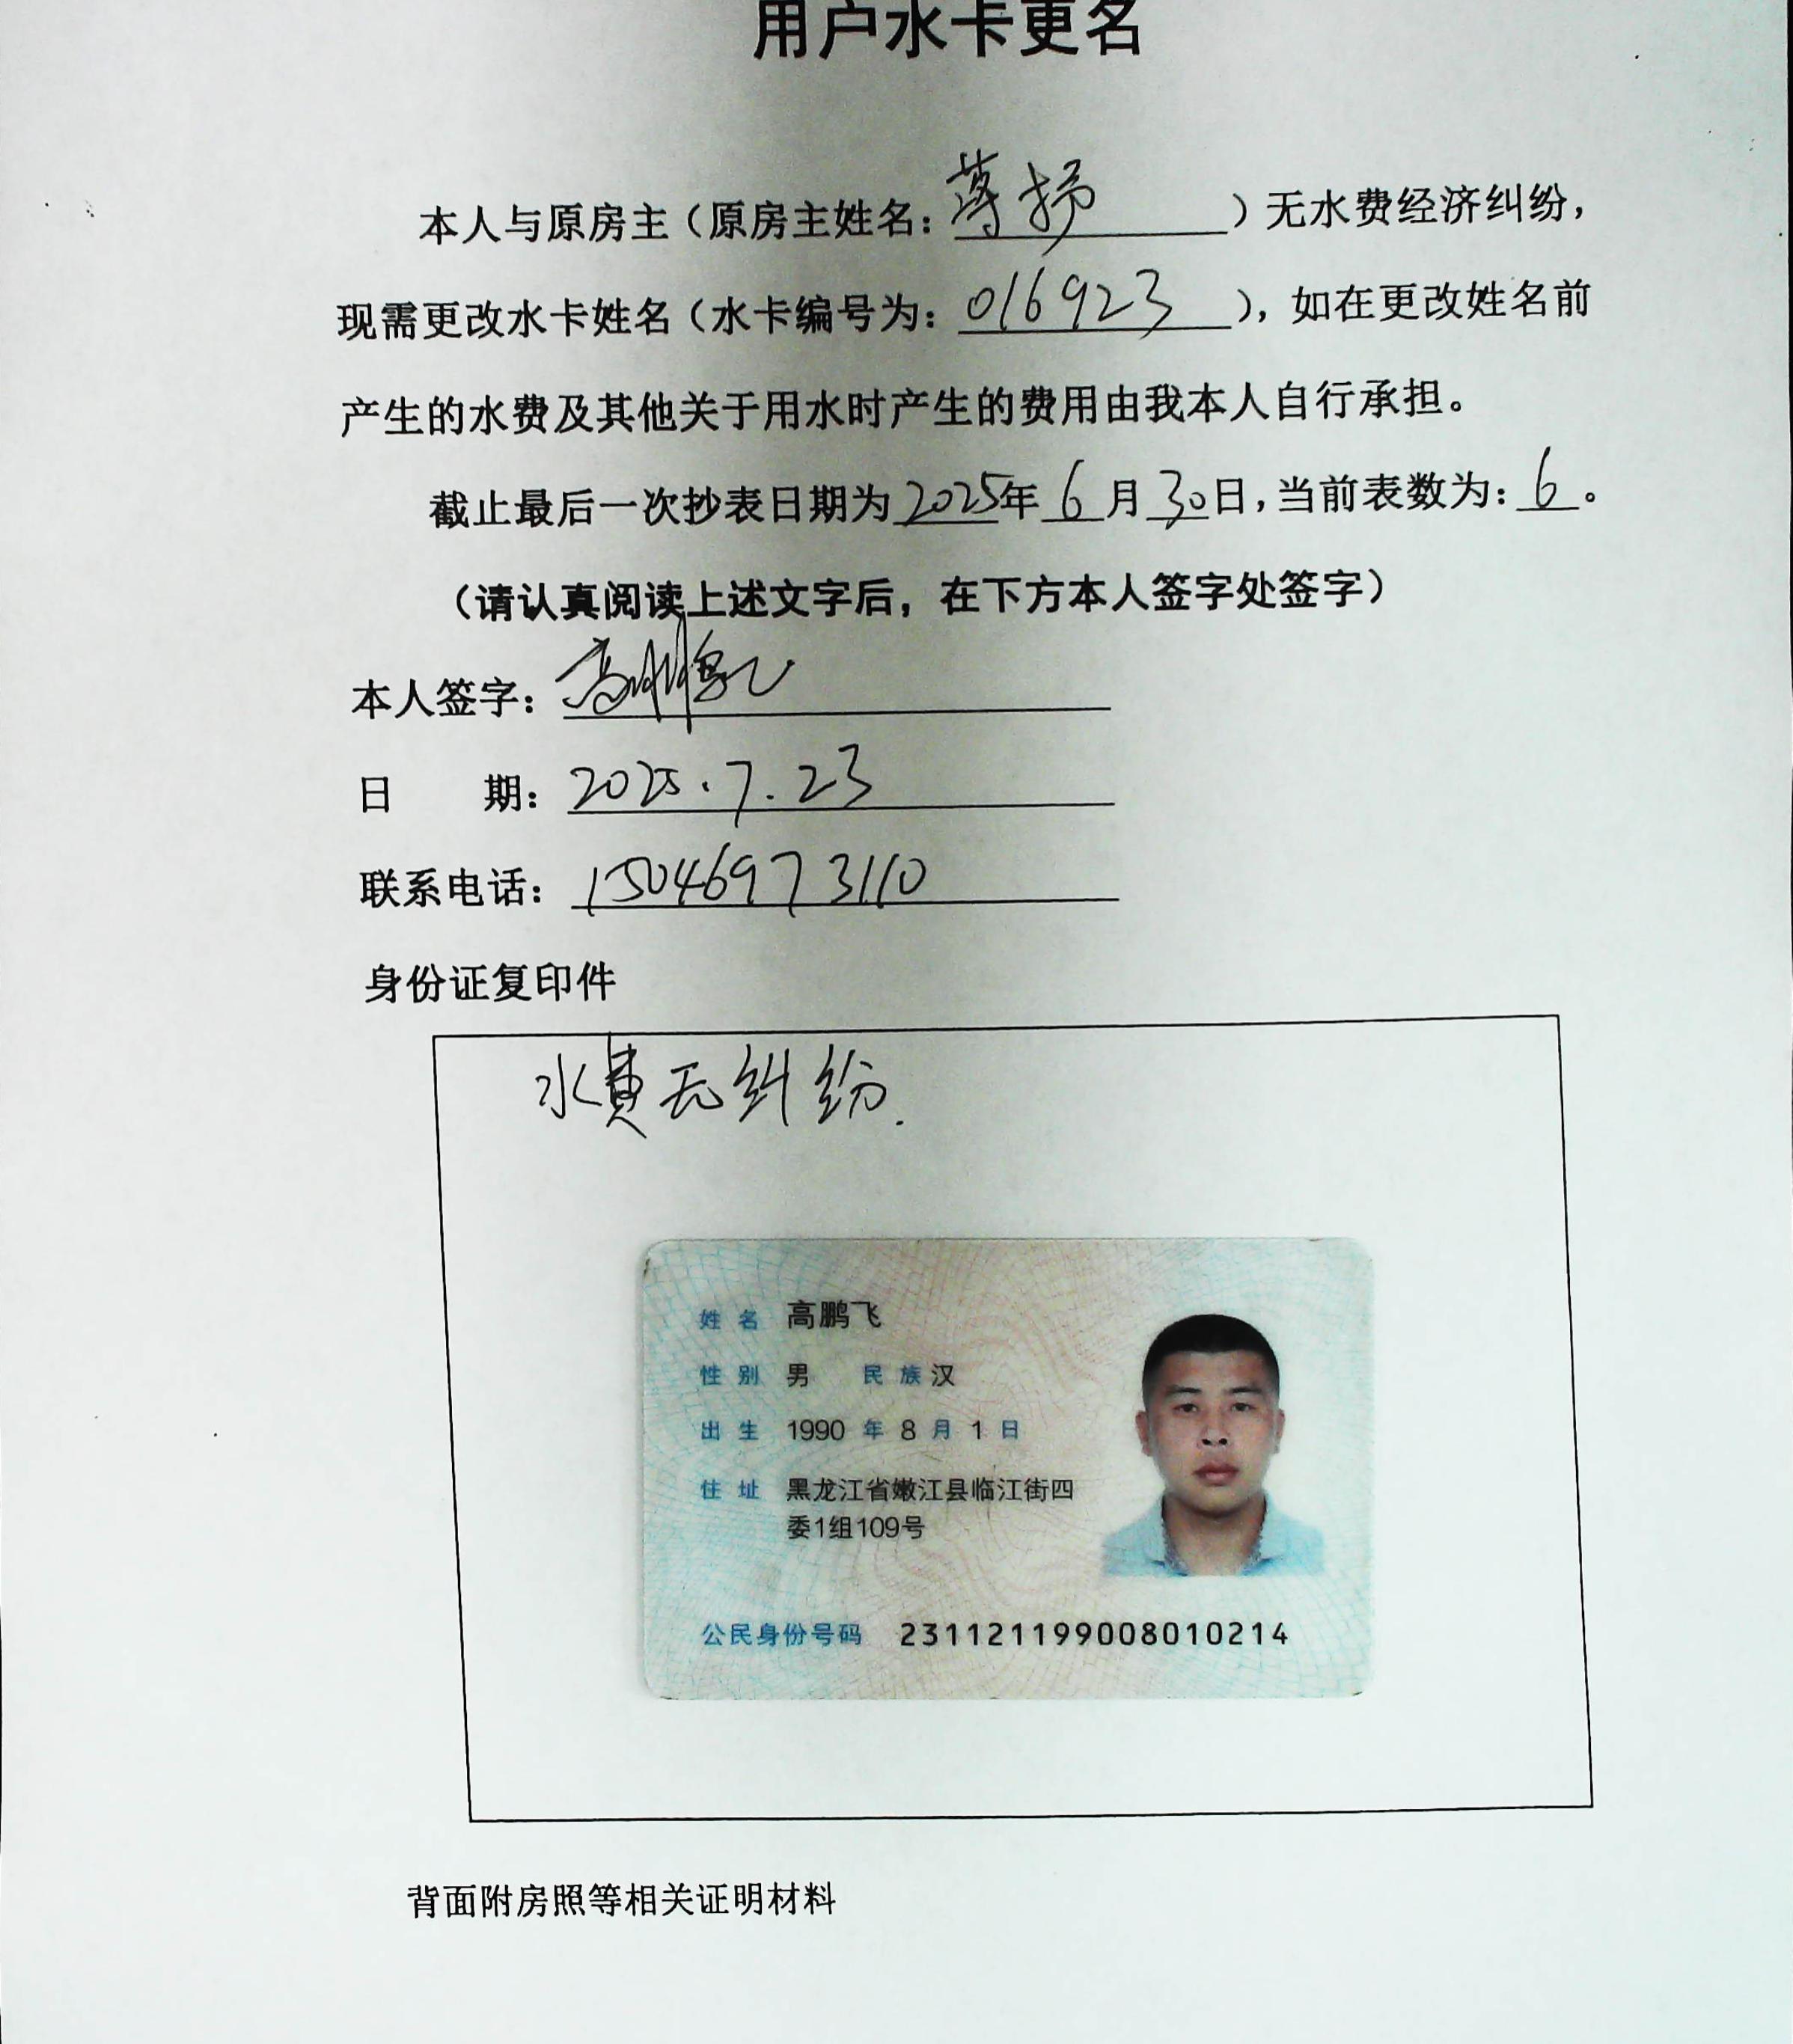 用户水卡更名
本人与原房主（原房主姓名：薄扬）无水费经济纠纷，
现需更改水卡姓名（水卡编号为：016923），如在更改姓名前
产生的水费及其他关于用水时产生的费用由我本人自行承担。
截止最后一次抄表日期为2025年6月30日，当前表数为：6。
（请认真阅读上述文字后，在下方本人签字处签字）
本人签字：高鹏飞
日期：2025.7.23
联系电话：15046973110
身份证复印件
水费无纠纷.
姓名 高鹏飞
性别 男 民族 汉
出生 1990 年 8 月 1 日
住址 黑龙江省嫩江县临江街四
委1组109号
公民身份号码 231121199008010214
背面附房照等相关证明材料